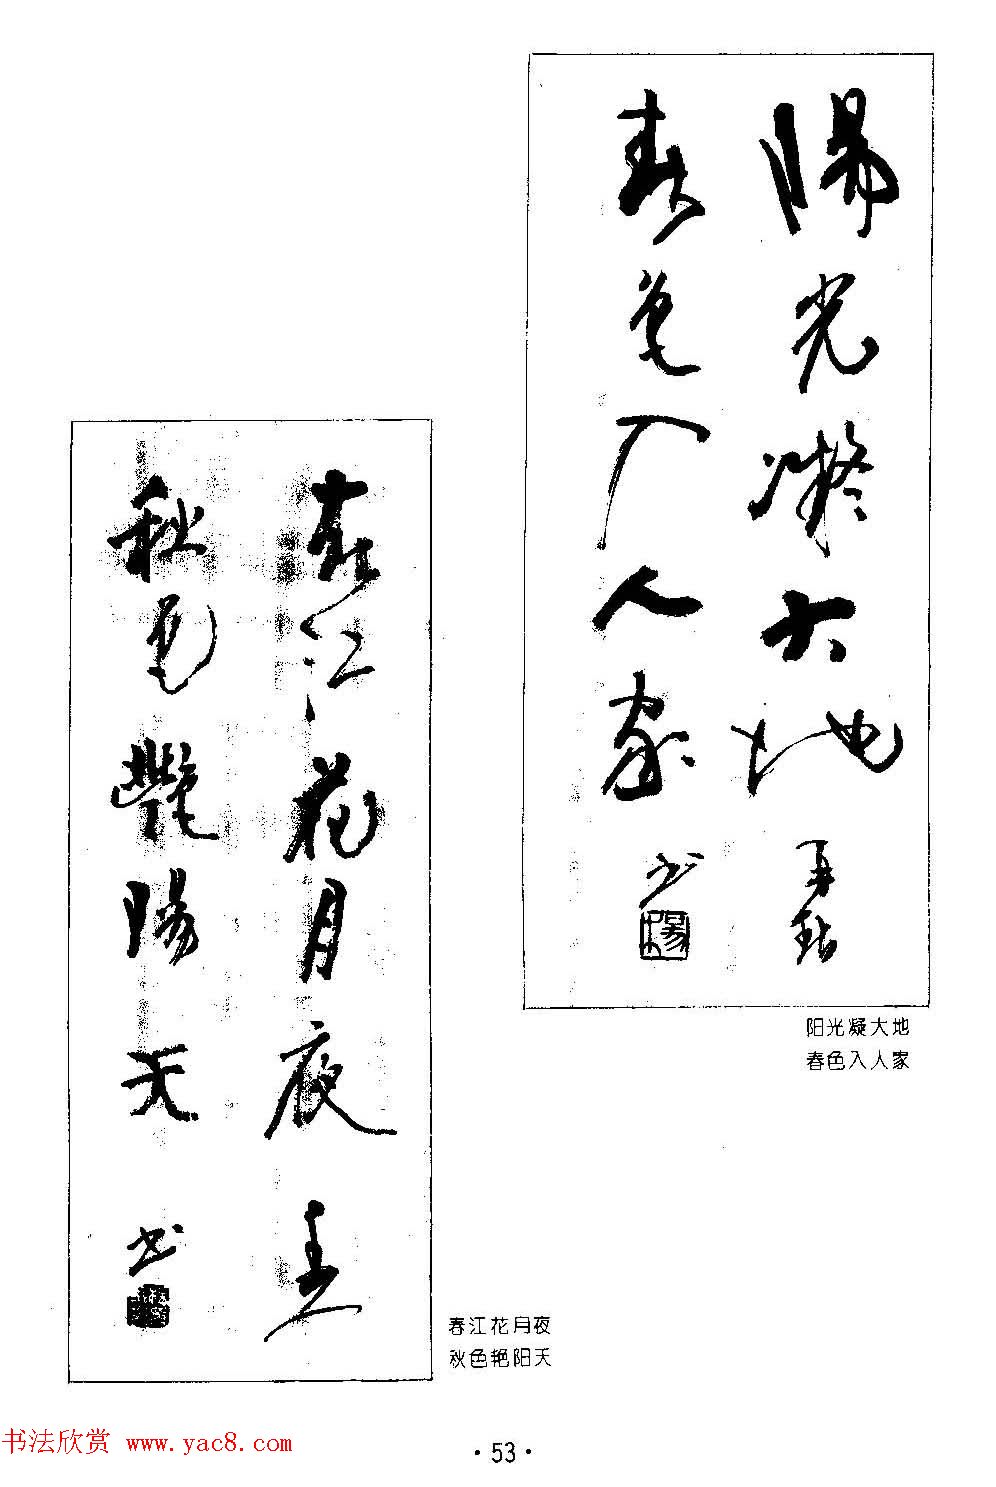 陽光凝大地
春色入人家
书
阳光凝大地
春色入人家
春江花月夜
秋色艷陽天
书
春江花月夜
秋色艳阳天
书法欣赏 www.yac8.com
·53·